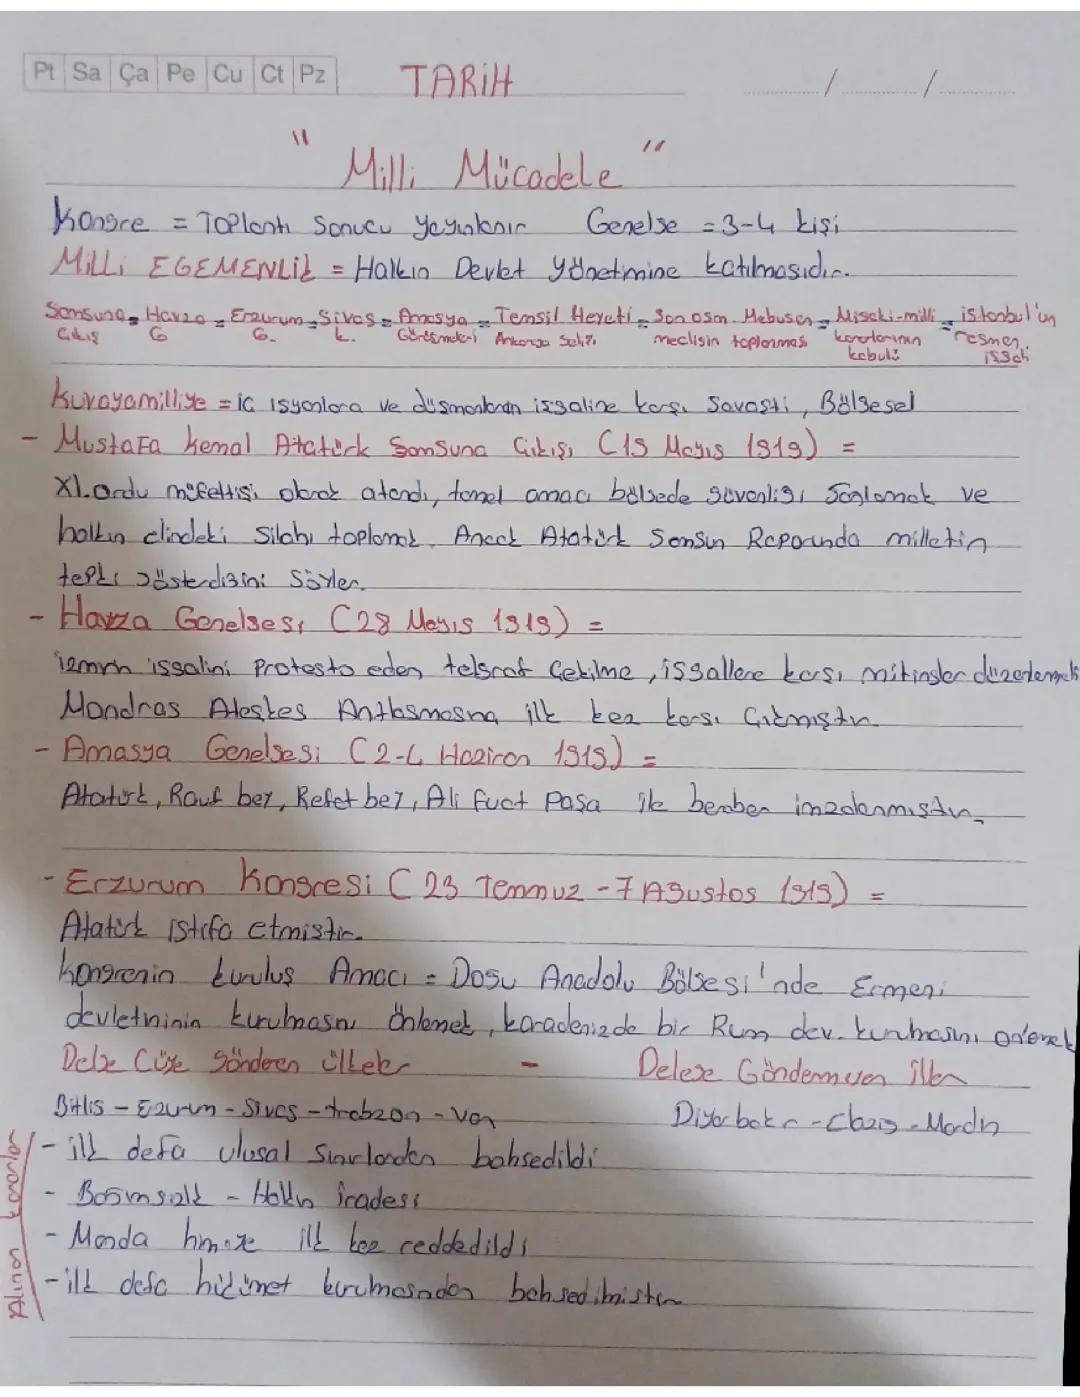 Pt Sa Ça Pe Cu Ct Pz TARİH / /
" Milli Mücadele "
Kongre = Toplantı Sonucu yayınlanır Genelge = 3-4 kişi
MİLLİ EGEMENLİK = Halkın Devlet Yönetimine katılmasıdır.
Samsuna = Havza = Erzurum = Sivas = Amasya = Temsil Heyeti = Son osm. Mebusan = Misaki-milli = istanbul'un
Çıkış G G. k. Görüşmeleri Ankaraya meclisin toplanması kararlarının resmen
kabulü işgali
Kuvayamilliye = iç isyanlara ve düşmanların işgaline karşı Savaştı, Bölgesel
- Mustafa Kemal Atatürk Samsuna Çıkışı (19 Mayıs 1919) =
XI. ordu müfettişi olarak atandı, temel amacı bölgede güvenliği Sağlamak ve
halkın elindeki Silahı toplamak. Ancak Atatürk Samsun Raporunda milletin
tepki gösterdiğini Söyler.
- Havza Genelgesi (28 Mayıs 1919) =
izmirin işgalini Protesto eden telgraf Çekilme, işgallere karşı mitingler düzenlemek
Mondros Ateşkes Antlaşmasına ilk kez karşı Çıkmıştır.
- Amasya Genelgesi (2-4 Haziran 1919) =
Atatürk, Rauf bey, Refet bey, Ali fuat Paşa ile beraber imzalanmıştır.
- Erzurum Kongresi (23 Temmuz - 7 Ağustos 1919) =
Atatürk istifa etmiştir.
Kongrenin kuruluş Amacı = Doğu Anadolu Bölgesi'nde Ermeni
devletininin kurulmasını önlemek, karadenizde bir Rum dev. kurulmasını önlemek
gönderen ülkeler - Delege Göndermeyen iller
Bitlis - Erzurum - Sivas - trabzon - Van Diyarbakır - Elazığ - Mardin
Alınan kararlar
- ilk defa ulusal Sınırlardan bahsedildi
- Bağımsızlık - Halkın iradesi
- Manda himaye ilk kez reddedildi
- ilk defa hükümet kurulmasından bahsedilmiştir